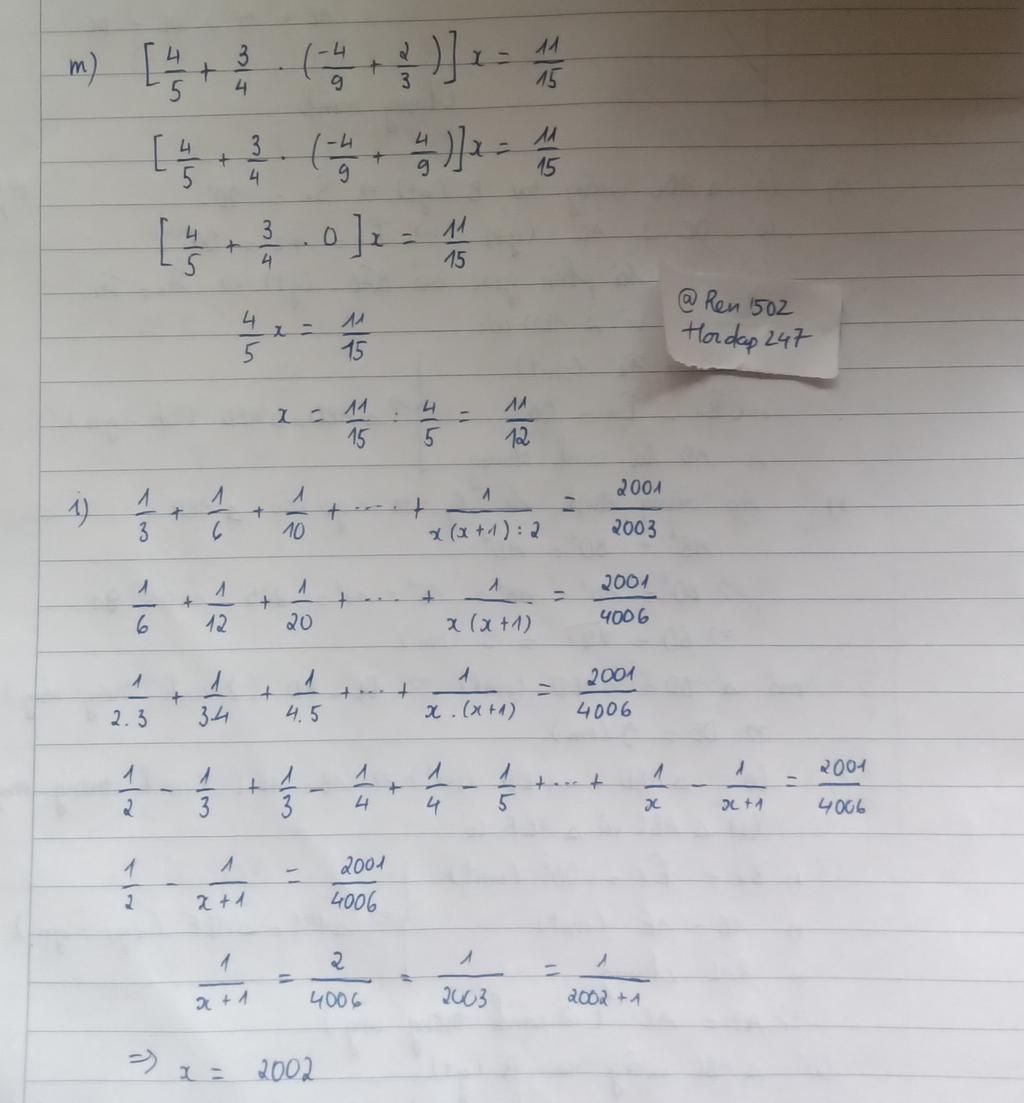 m) [4/5 + 3/4 . (-4/9 + 2/3)] x = 11/15
[4/5 + 3/4 . (-4/9 + 4/9)] x = 11/15
[4/5 + 3/4 . 0] x = 11/15
@Ren1502
Hoidap247
4/5 x = 11/15
x = 11/15 : 4/5 = 11/12
i) 1/3 + 1/6 + 1/10 + .... + 1/x(x+1):2 = 2001/2003
1/6 + 1/12 + 1/20 + .... + 1/x(x+1) = 2001/4006
1/2.3 + 1/3.4 + 1/4.5 + ... + 1/x.(x+1) = 2001/4006
1/2 - 1/3 + 1/3 - 1/4 + 1/4 - 1/5 + ... + 1/x - 1/x+1 = 2001/4006
1/2 - 1/x+1 = 2001/4006
1/x+1 = 2/4006 = 1/2003 = 1/2002+1
=> x = 2002